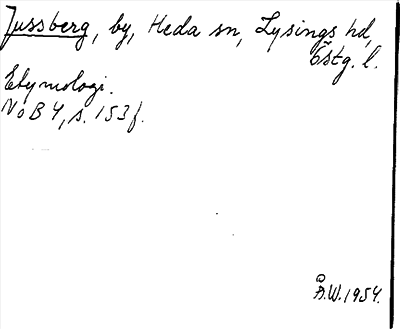 Jussberg, by, Heda sn, Lysings hd,
Östg. l.
Etymologi.
NoB 4, s. 153f.
Å.W. 1954.